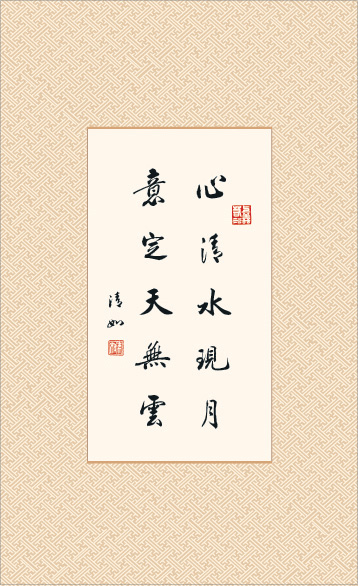 心清水現月
意定天無雲
清如